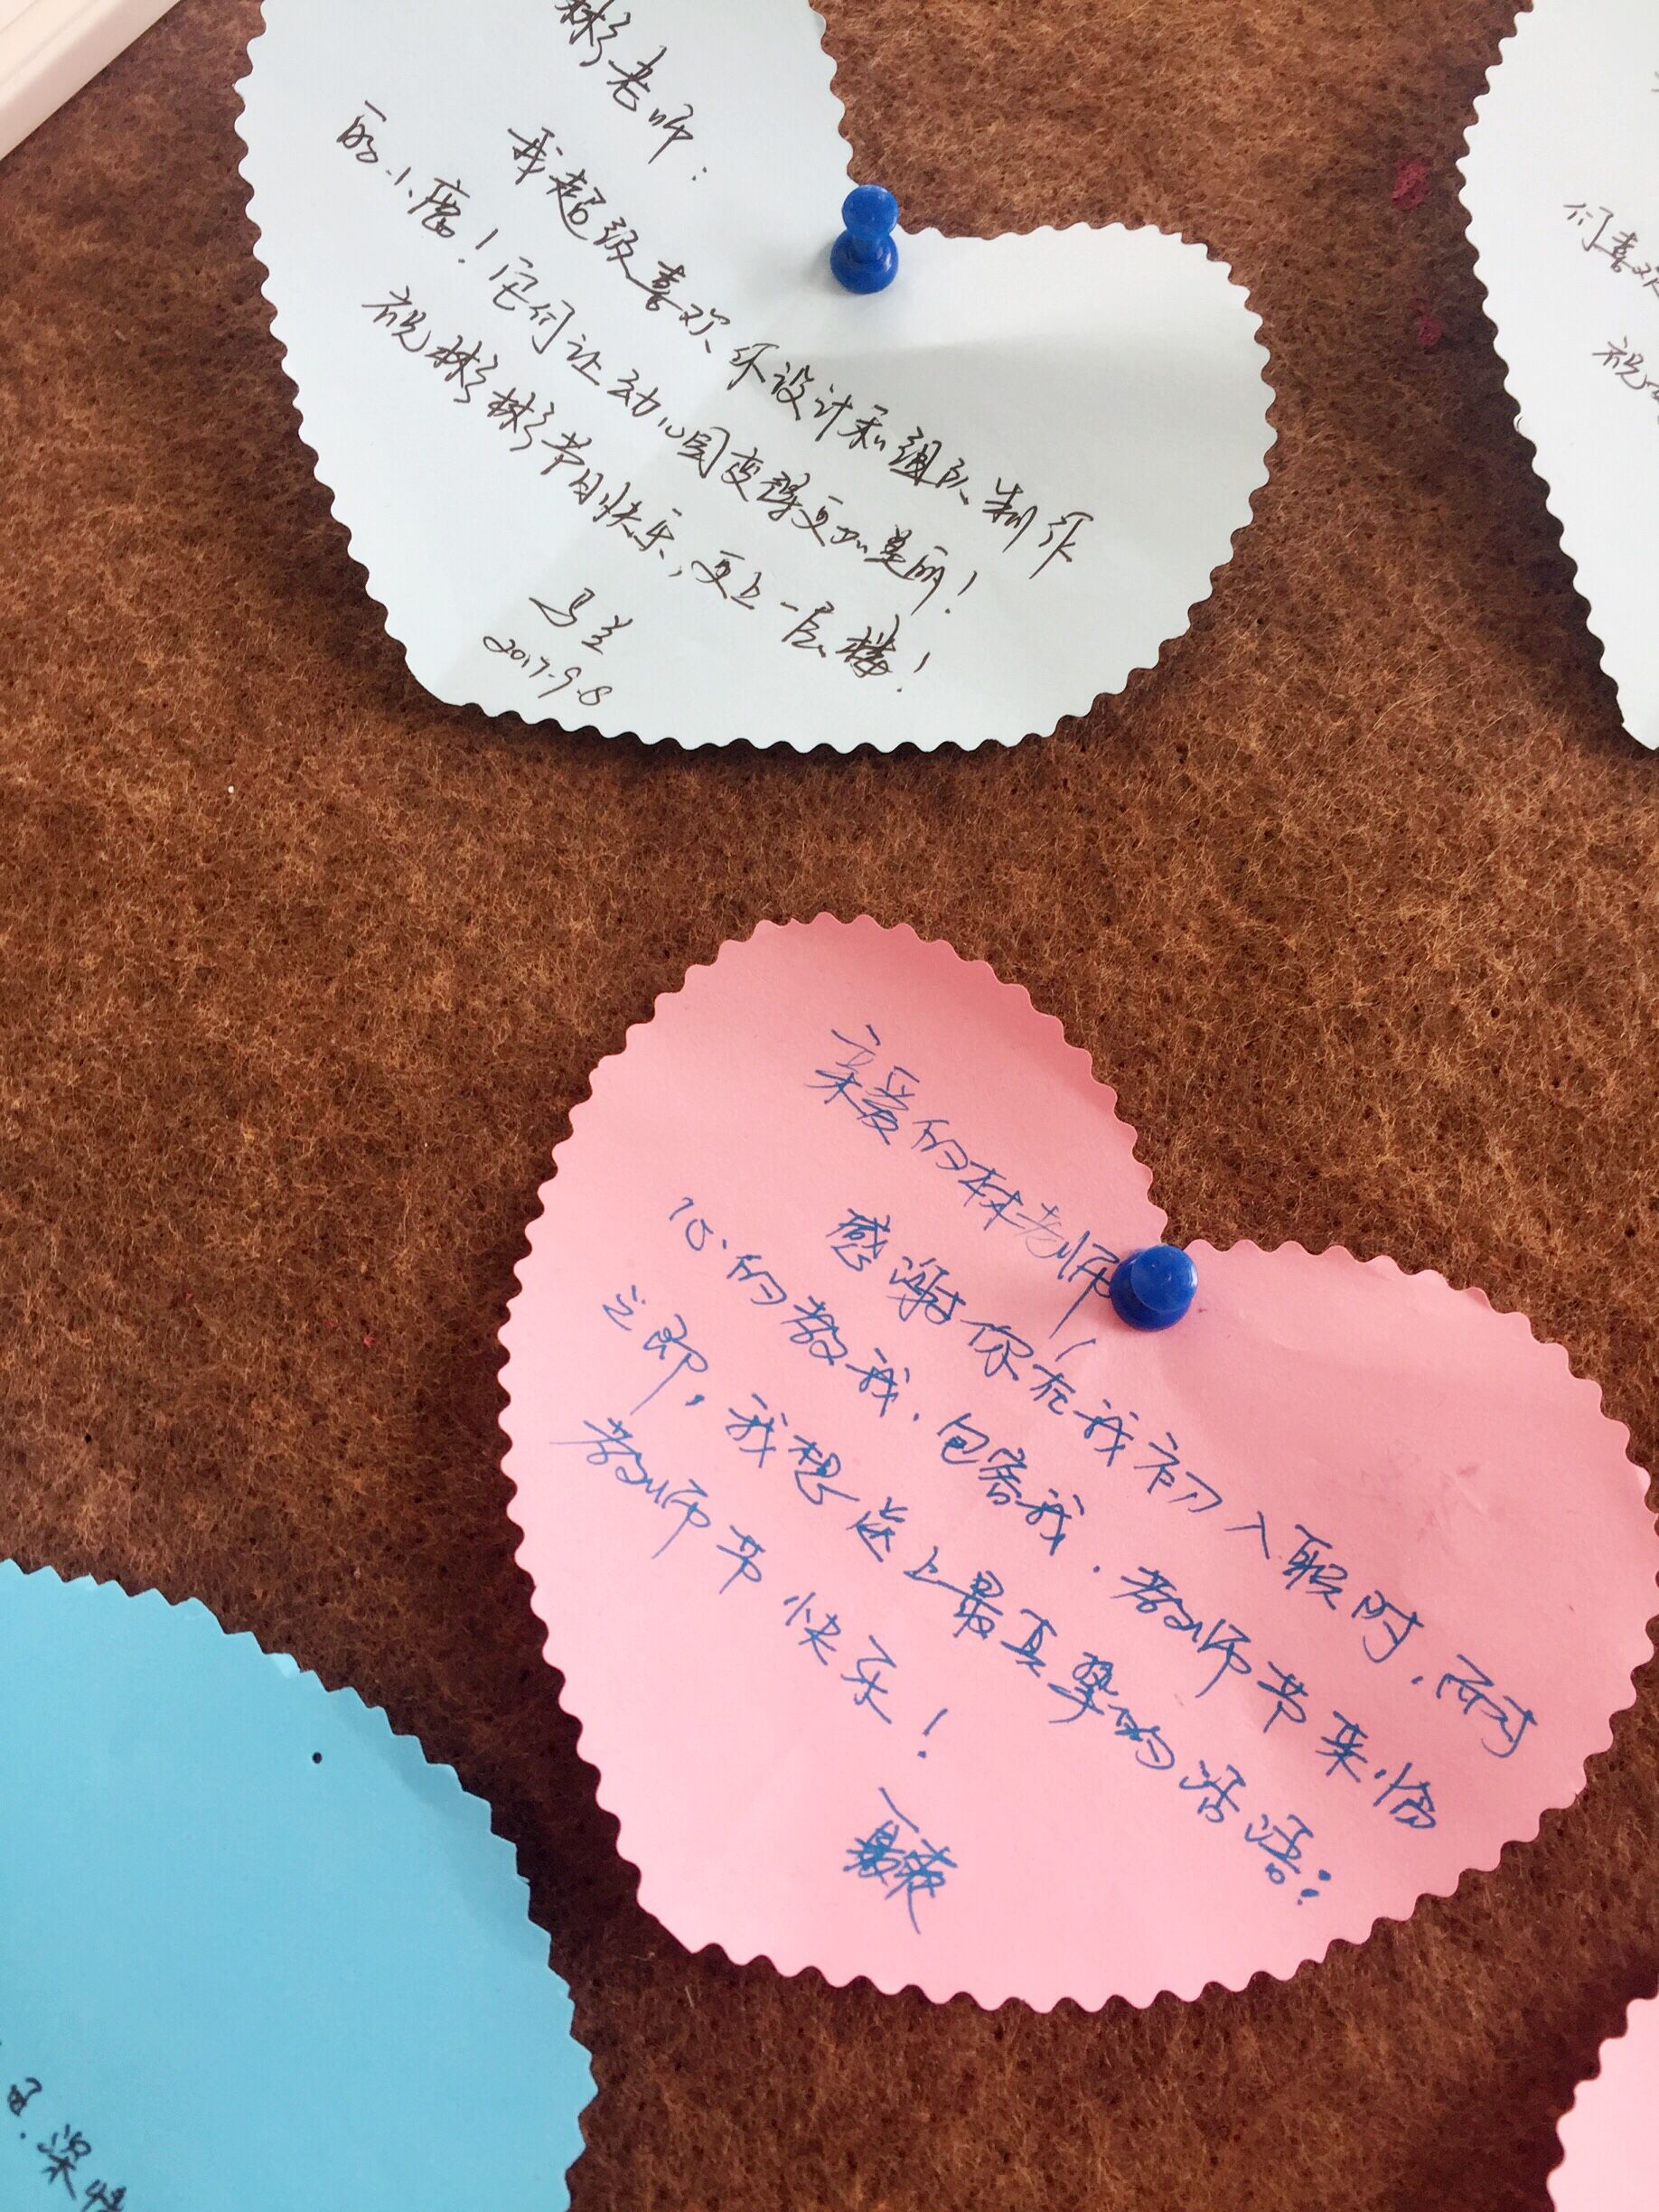 彬老师：
我超级喜欢你设计和组队制作
的小鹿！它们让幼儿园变得更加美丽！
祝彬彬节日快乐，更上一层楼！
马兰
2017.9.8
们喜欢
祝
亲爱的林老师，
感谢你在我初入职时，耐
心的教我，包容我。教师节来临
之即，我想送上最真挚的话语：
教师节快乐！